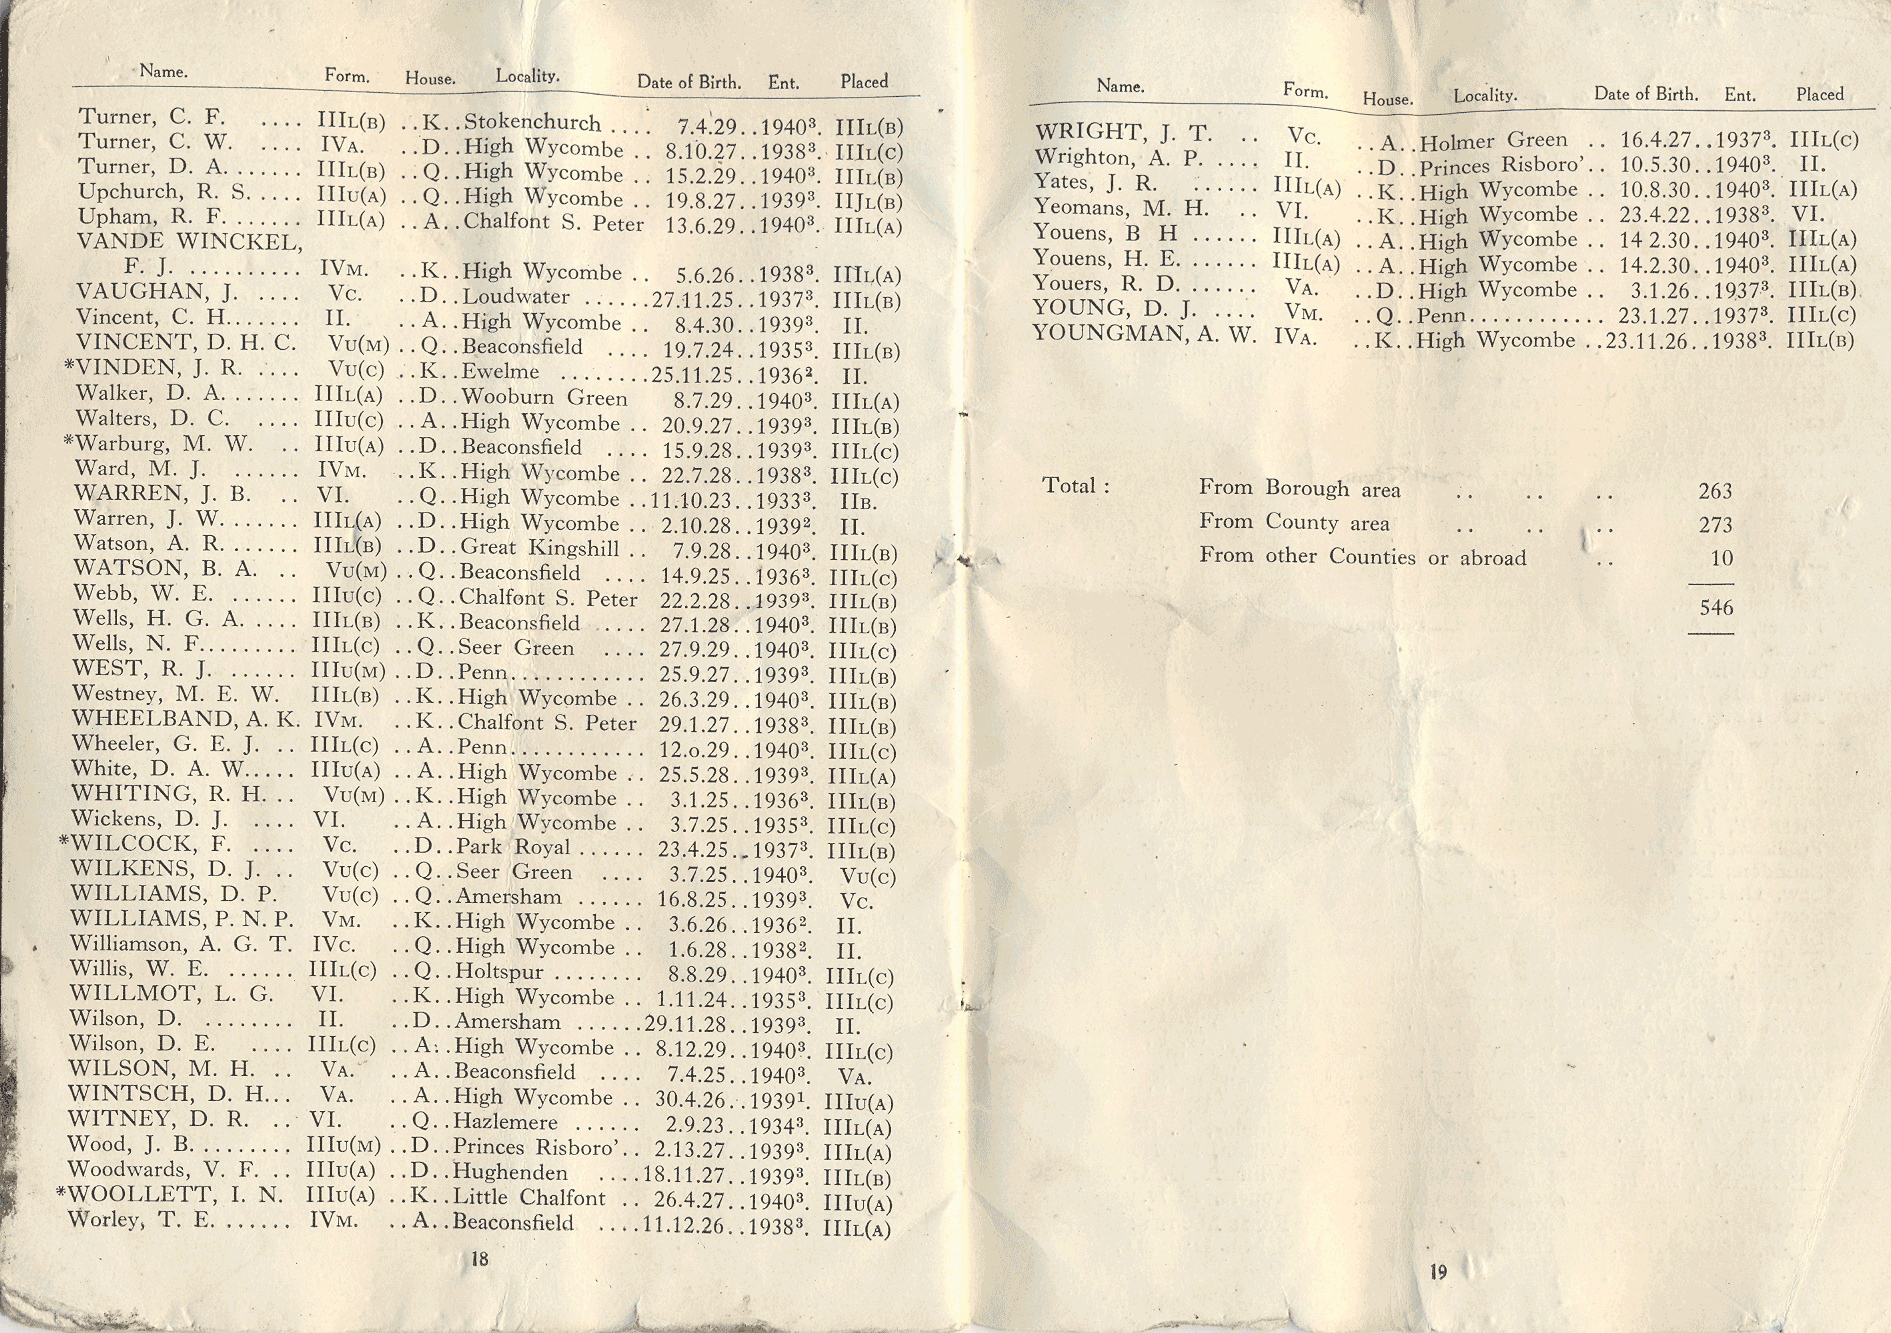 Name. Form. House. Locality. Date of Birth. Ent. Placed
Turner, C. F. .... IIIL(B) ..K..Stokenchurch .... 7.4.29..1940³. IIIL(B)
Turner, C. W. .... IVA. ..D..High Wycombe .. 8.10.27..1938³. IIIL(C)
Turner, D. A. ...... IIIL(B) ..Q..High Wycombe .. 15.2.29..1940³. IIIL(B)
Upchurch, R. S. .... IIIU(A) ..Q..High Wycombe .. 19.8.27..1939³. IIJL(B)
Upham, R. F. ...... IIIL(A) ..A..Chalfont S. Peter 13.6.29..1940³. IIIL(A)
VANDE WINCKEL,
F. J. .......... IVM. ..K..High Wycombe .. 5.6.26..1938³. IIIL(A)
VAUGHAN, J. .... VC. ..D..Loudwater ......27.11.25..1937³. IIIL(B)
Vincent, C. H....... II. ..A..High Wycombe .. 8.4.30..1939³. II.
VINCENT, D. H. C. VU(M) ..Q..Beaconsfield .... 19.7.24..1935³. IIIL(B)
*VINDEN, J. R. .... VU(C) ..K..Ewelme ........25.11.25..1936². II.
Walker, D. A. ...... IIIL(A) ..D..Wooburn Green 8.7.29..1940³. IIIL(A)
Walters, D. C. .... IIIU(C) ..A..High Wycombe .. 20.9.27..1939³. IIIL(B)
*Warburg, M. W. .. IIIU(A) ..D..Beaconsfield .... 15.9.28..1939³. IIIL(C)
Ward, M. J. ...... IVM. ..K..High Wycombe .. 22.7.28..1938³. IIIL(C)
WARREN, J. B. .. VI. ..Q..High Wycombe ..11.10.23..1933³. IIB.
Warren, J. W. ...... IIIL(A) ..D..High Wycombe .. 2.10.28..1939². II.
Watson, A. R. ...... IIIL(B) ..D..Great Kingshill .. 7.9.28..1940³. IIIL(B)
WATSON, B. A. .. VU(M) ..Q..Beaconsfield .... 14.9.25..1936³. IIIL(C)
Webb, W. E. ...... IIIU(C) ..Q..Chalfont S. Peter 22.2.28..1939³. IIIL(B)
Wells, H. G. A. .... IIIL(B) ..K..Beaconsfield ..... 27.1.28..1940³. IIIL(B)
Wells, N. F......... IIIL(C) ..Q..Seer Green .... 27.9.29..1940³. IIIL(C)
WEST, R. J. ...... IIIU(M) ..D..Penn............ 25.9.27..1939³. IIIL(B)
Westney, M. E. W. IIIL(B) ..K..High Wycombe .. 26.3.29..1940³. IIIL(B)
WHEELBAND, A. K. IVM. ..K..Chalfont S. Peter 29.1.27..1938³. IIIL(B)
Wheeler, G. E. J. .. IIIL(C) ..A..Penn............ 12.o.29..1940³. IIIL(C)
White, D. A. W..... IIIU(A) ..A..High Wycombe .. 25.5.28..1939³. IIIL(A)
WHITING, R. H. .. VU(M) ..K..High Wycombe .. 3.1.25..1936³. IIIL(B)
Wickens, D. J. .... VI. ..A..High Wycombe .. 3.7.25..1935³. IIIL(C)
*WILCOCK, F. .... VC. ..D..Park Royal ...... 23.4.25..1937³. IIIL(B)
WILKENS, D. J. .. VU(C) ..Q..Seer Green .... 3.7.25..1940³. VU(C)
WILLIAMS, D. P. VU(C) ..Q..Amersham ...... 16.8.25..1939³. VC.
WILLIAMS, P. N. P. VM. ..K..High Wycombe .. 3.6.26..1936². II.
Williamson, A. G. T. IVC. ..Q..High Wycombe .. 1.6.28..1938². II.
Willis, W. E. ...... IIIL(C) ..Q..Holtspur ........ 8.8.29..1940³. IIIL(C)
WILLMOT, L. G. VI. ..K..High Wycombe .. 1.11.24..1935³. IIIL(C)
Wilson, D. ........ II. ..D..Amersham ......29.11.28..1939³. II.
Wilson, D. E. .... IIIL(C) ..A..High Wycombe .. 8.12.29..1940³. IIIL(C)
WILSON, M. H. .. VA. ..A..Beaconsfield .... 7.4.25..1940³. VA.
WINTSCH, D. H... VA. ..A..High Wycombe .. 30.4.26..1939¹. IIIU(A)
WITNEY, D. R. .. VI. ..Q..Hazlemere ...... 2.9.23..1934³. IIIL(A)
Wood, J. B. ........ IIIU(M) ..D..Princes Risboro'.. 2.13.27..1939³. IIIL(A)
Woodwards, V. F. .. IIIU(A) ..D..Hughenden ....18.11.27..1939³. IIIL(B)
*WOOLLETT, I. N. IIIU(A) ..K..Little Chalfont .. 26.4.27..1940³. IIIU(A)
Worley, T. E. ...... IVM. ..A..Beaconsfield ....11.12.26..1938³. IIIL(A)
18
Name. Form. House. Locality. Date of Birth. Ent. Placed
WRIGHT, J. T. .. VC. ..A..Holmer Green .. 16.4.27..1937³. IIIL(C)
Wrighton, A. P. .... II. ..D..Princes Risboro'.. 10.5.30..1940³. II.
Yates, J. R. ...... IIIL(A) ..K..High Wycombe .. 10.8.30..1940³. IIIL(A)
Yeomans, M. H. .. VI. ..K..High Wycombe .. 23.4.22..1938³. VI.
Youens, B H ...... IIIL(A) ..A..High Wycombe .. 14 2.30..1940³. IIIL(A)
Youens, H. E. ...... IIIL(A) ..A..High Wycombe .. 14.2.30..1940³. IIIL(A)
Youers, R. D. ...... VA. ..D..High Wycombe .. 3.1.26..1937³. IIIL(B)
YOUNG, D. J. .... VM. ..Q..Penn............ 23.1.27..1937³. IIIL(C)
YOUNGMAN, A. W. IVA. ..K..High Wycombe ..23.11.26..1938³. IIIL(B)
Total : From Borough area .. .. .. 263
From County area .. .. .. 273
From other Counties or abroad .. 10
546
19